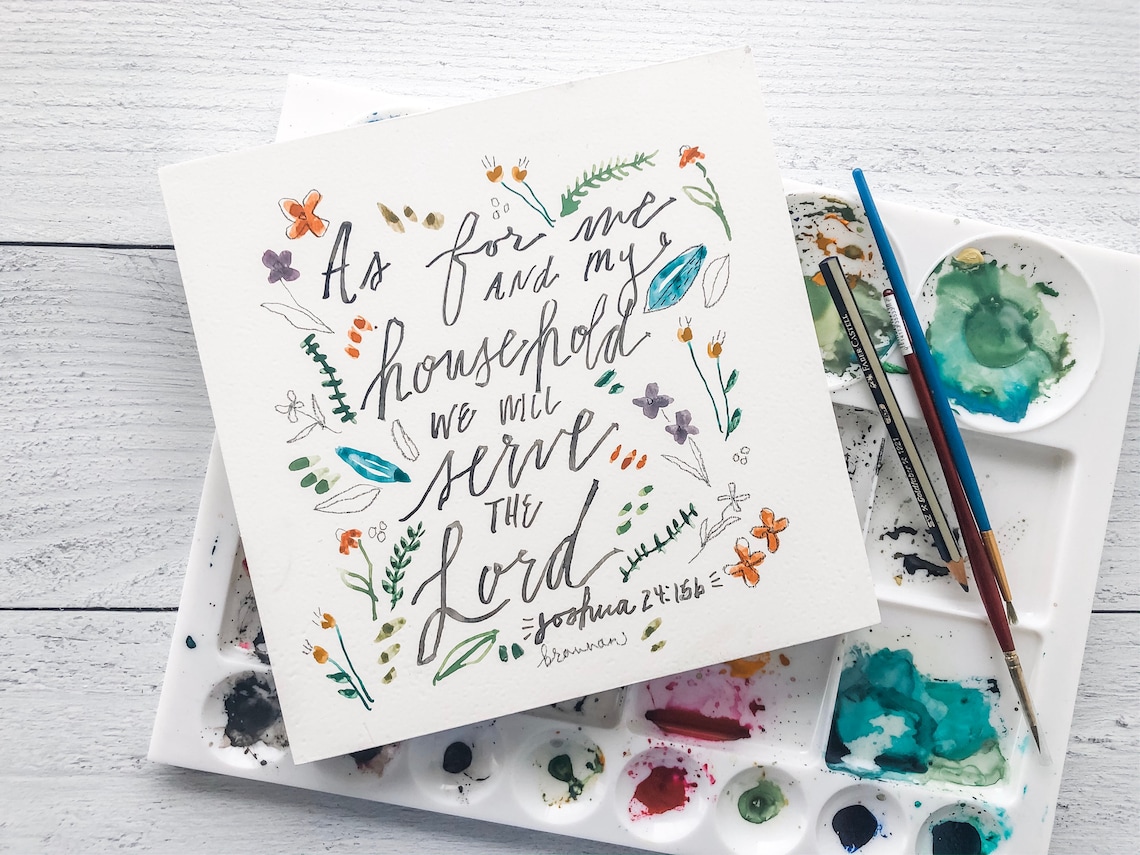 As for me
AND my
household
WE WILL
serve
THE
Lord
=Joshua 24:15b=
brannan
FABER-CASTELL
Goldfaber